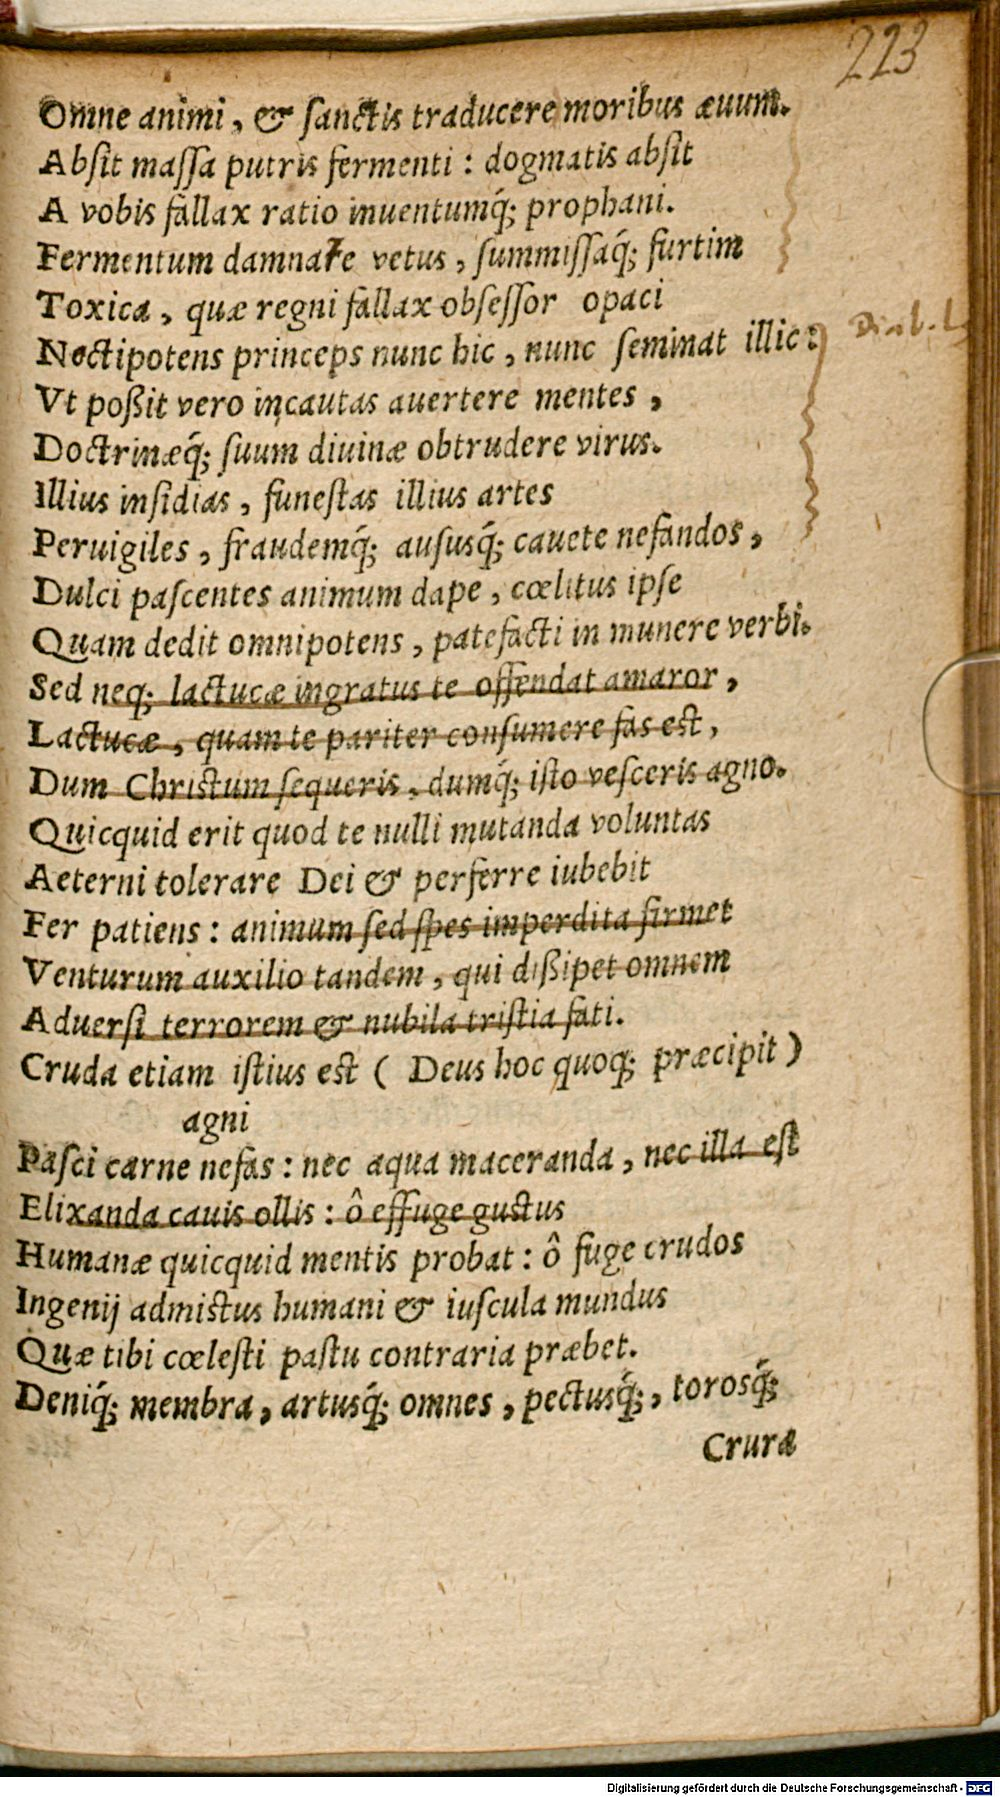 223
Omne animi, & sanctis traducere moribus æuum.
Absit massa putris fermenti : dogmatis absit
A vobis fallax ratio inuentumq́; prophani.
Fermentum damnate vetus, summissaq́; furtim
Toxica, quæ regni fallax obsessor opaci
Noctipotens princeps nunc hic, nunc seminat illic:
Vt poßit vero incautas auertere mentes,
Doctrinæq́; suum diuinæ obtrudere virus.
Illius insidias, funestas illius artes
Peruigiles, fraudemq́; aususq́; cauete nefandos,
Dulci pascentes animum dape, cœlitus ipse
Quam dedit omnipotens, patefacti in munere verbi.
Sed neq; lactucæ ingratus te offendat amaror,
Lactucæ, quam te pariter consumere fas est,
Dum Christum sequeris, dumq́; isto vesceris agno.
Quicquid erit quod te nulli mutanda voluntas
Aeterni tolerare Dei & perferre iubebit
Fer patiens : animum sed spes imperdita firmet
Venturum auxilio tandem, qui dißipet omnem
Aduersi terrorem & nubila tristia fati.
Cruda etiam istius est ( Deus hoc quoq; præcipit )
agni
Pasci carne nefas : nec aqua maceranda, nec illa est
Elixanda cauis ollis : ô effuge gustus
Humanæ quicquid mentis probat : ô fuge crudos
Ingenij admictus humani & iuscula mundus
Quæ tibi cœlesti pastu contraria præbet.
Deniq́; membra, artusq́; omnes, pectusq́;, torosq́;
Crura
Digitalisierung gefördert durch die Deutsche Forschungsgemeinschaft - DFG